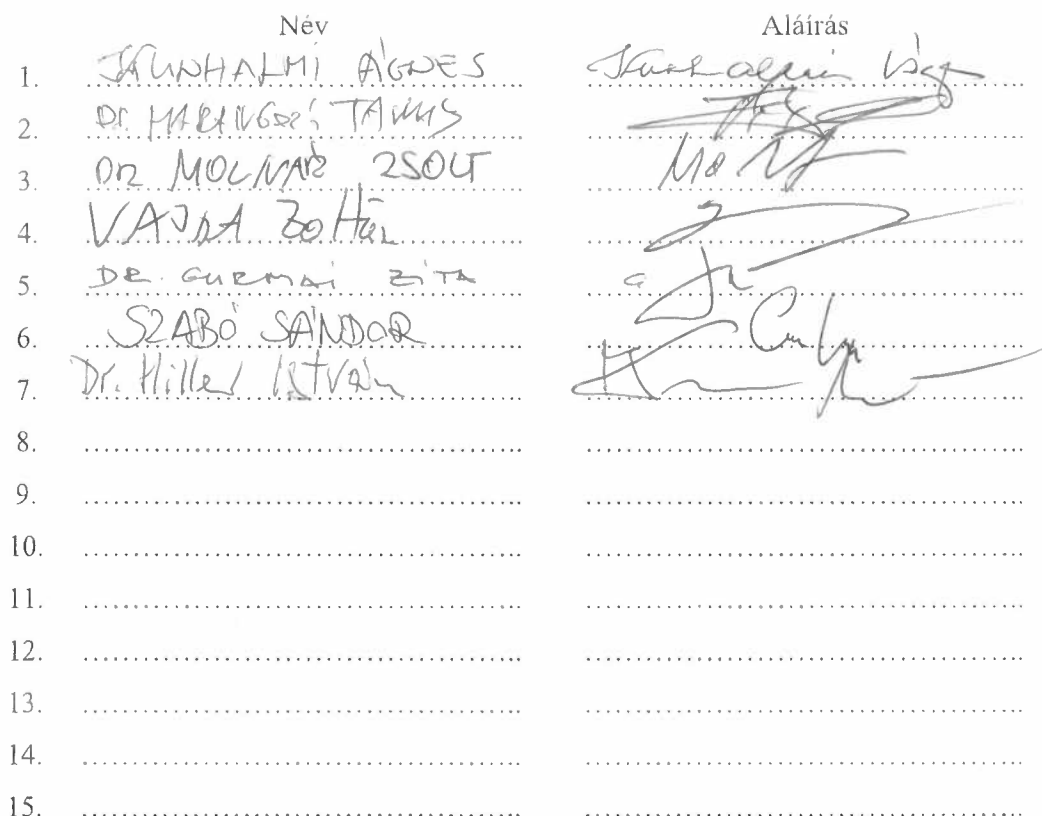 Név Aláírás
1. KUNHALMI ÁGNES Kunhalmi Ágn
2. Dr. HARANGOZÓ TAMÁS
3. DR MOLNÁR ZSOLT Mo
4. VAJDA Zoltán
5. DR. GURMAI ZITA
6. SZABÓ SÁNDOR
7. Dr. Hiller István
8.
9.
10.
11.
12.
13.
14.
15.